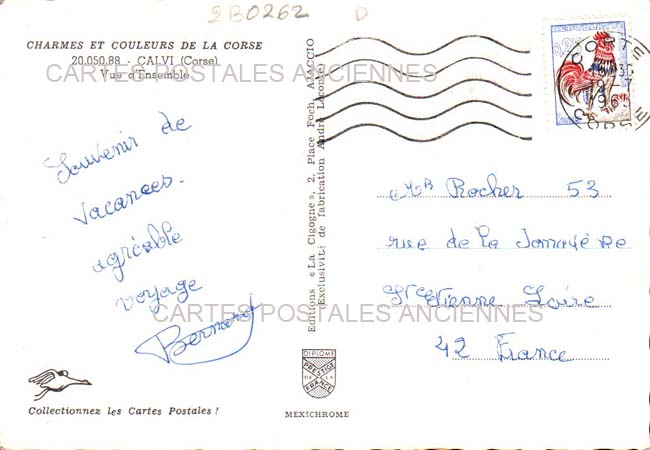 2B0262
D
CHARMES ET COULEURS DE LA CORSE
20.050.88 - CALVI (Corse)
Vue d'Ensemble
CARTES POSTALES ANCIENNES
Souvenir de
vacances.
agréable
voyage
Bernard
Editions « La Cigogne », 2, Place Foch, AJACCIO
Exclusivité de fabrication André Leconte
0,25
CORTE
CORSE
Mr Rocher 53
rue de la
St Etienne Loire
42 France
CARTES POSTALES ANCIENNES
DIPLOME
PRESTIGE
DE LA
FRANCE
Collectionnez les Cartes Postales !
MEXICHROME